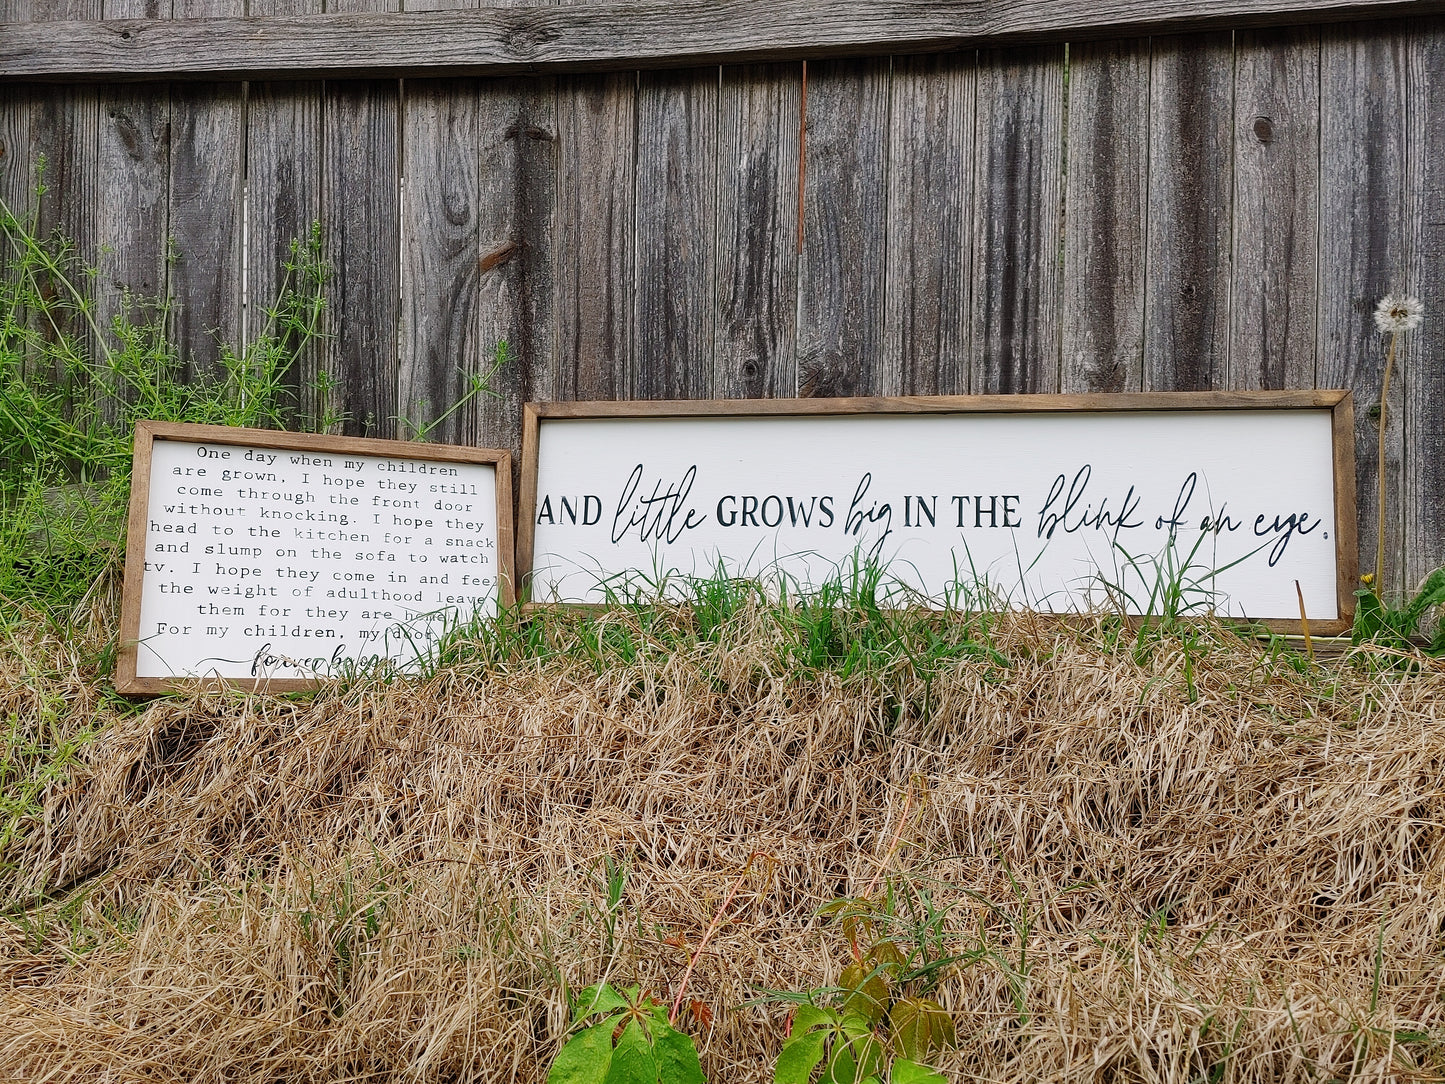 One day when my children
are grown, I hope they still
come through the front door
without knocking. I hope they
head to the kitchen for a snack
and slump on the sofa to watch
tv. I hope they come in and feel
the weight of adulthood leave
them for they are home.
For my children, my door
forever be open
AND little GROWS big IN THE blink of an eye.